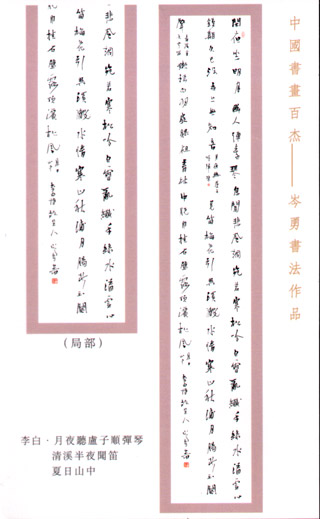 中國書畫百杰——岑勇書法作品
閑夜坐明月幽人彈素琴忽聞悲風調宛若寒松吟白雪亂纖手綠水清虛心
鍾期久已沒世上無知音
笛梅花引吳溪隴水情寒山秋浦月腸斷玉關
聲
搖白羽扇裸袒青林中脫巾掛石壁露頂灑松風
悲風調宛若寒松吟白雪亂纖手綠水清虛心
笛梅花引吳溪隴水情寒山秋浦月腸斷玉關
中脫巾掛石壁露頂灑松風
(局部)
李白·月夜聽盧子順彈琴
清溪半夜聞笛
夏日山中